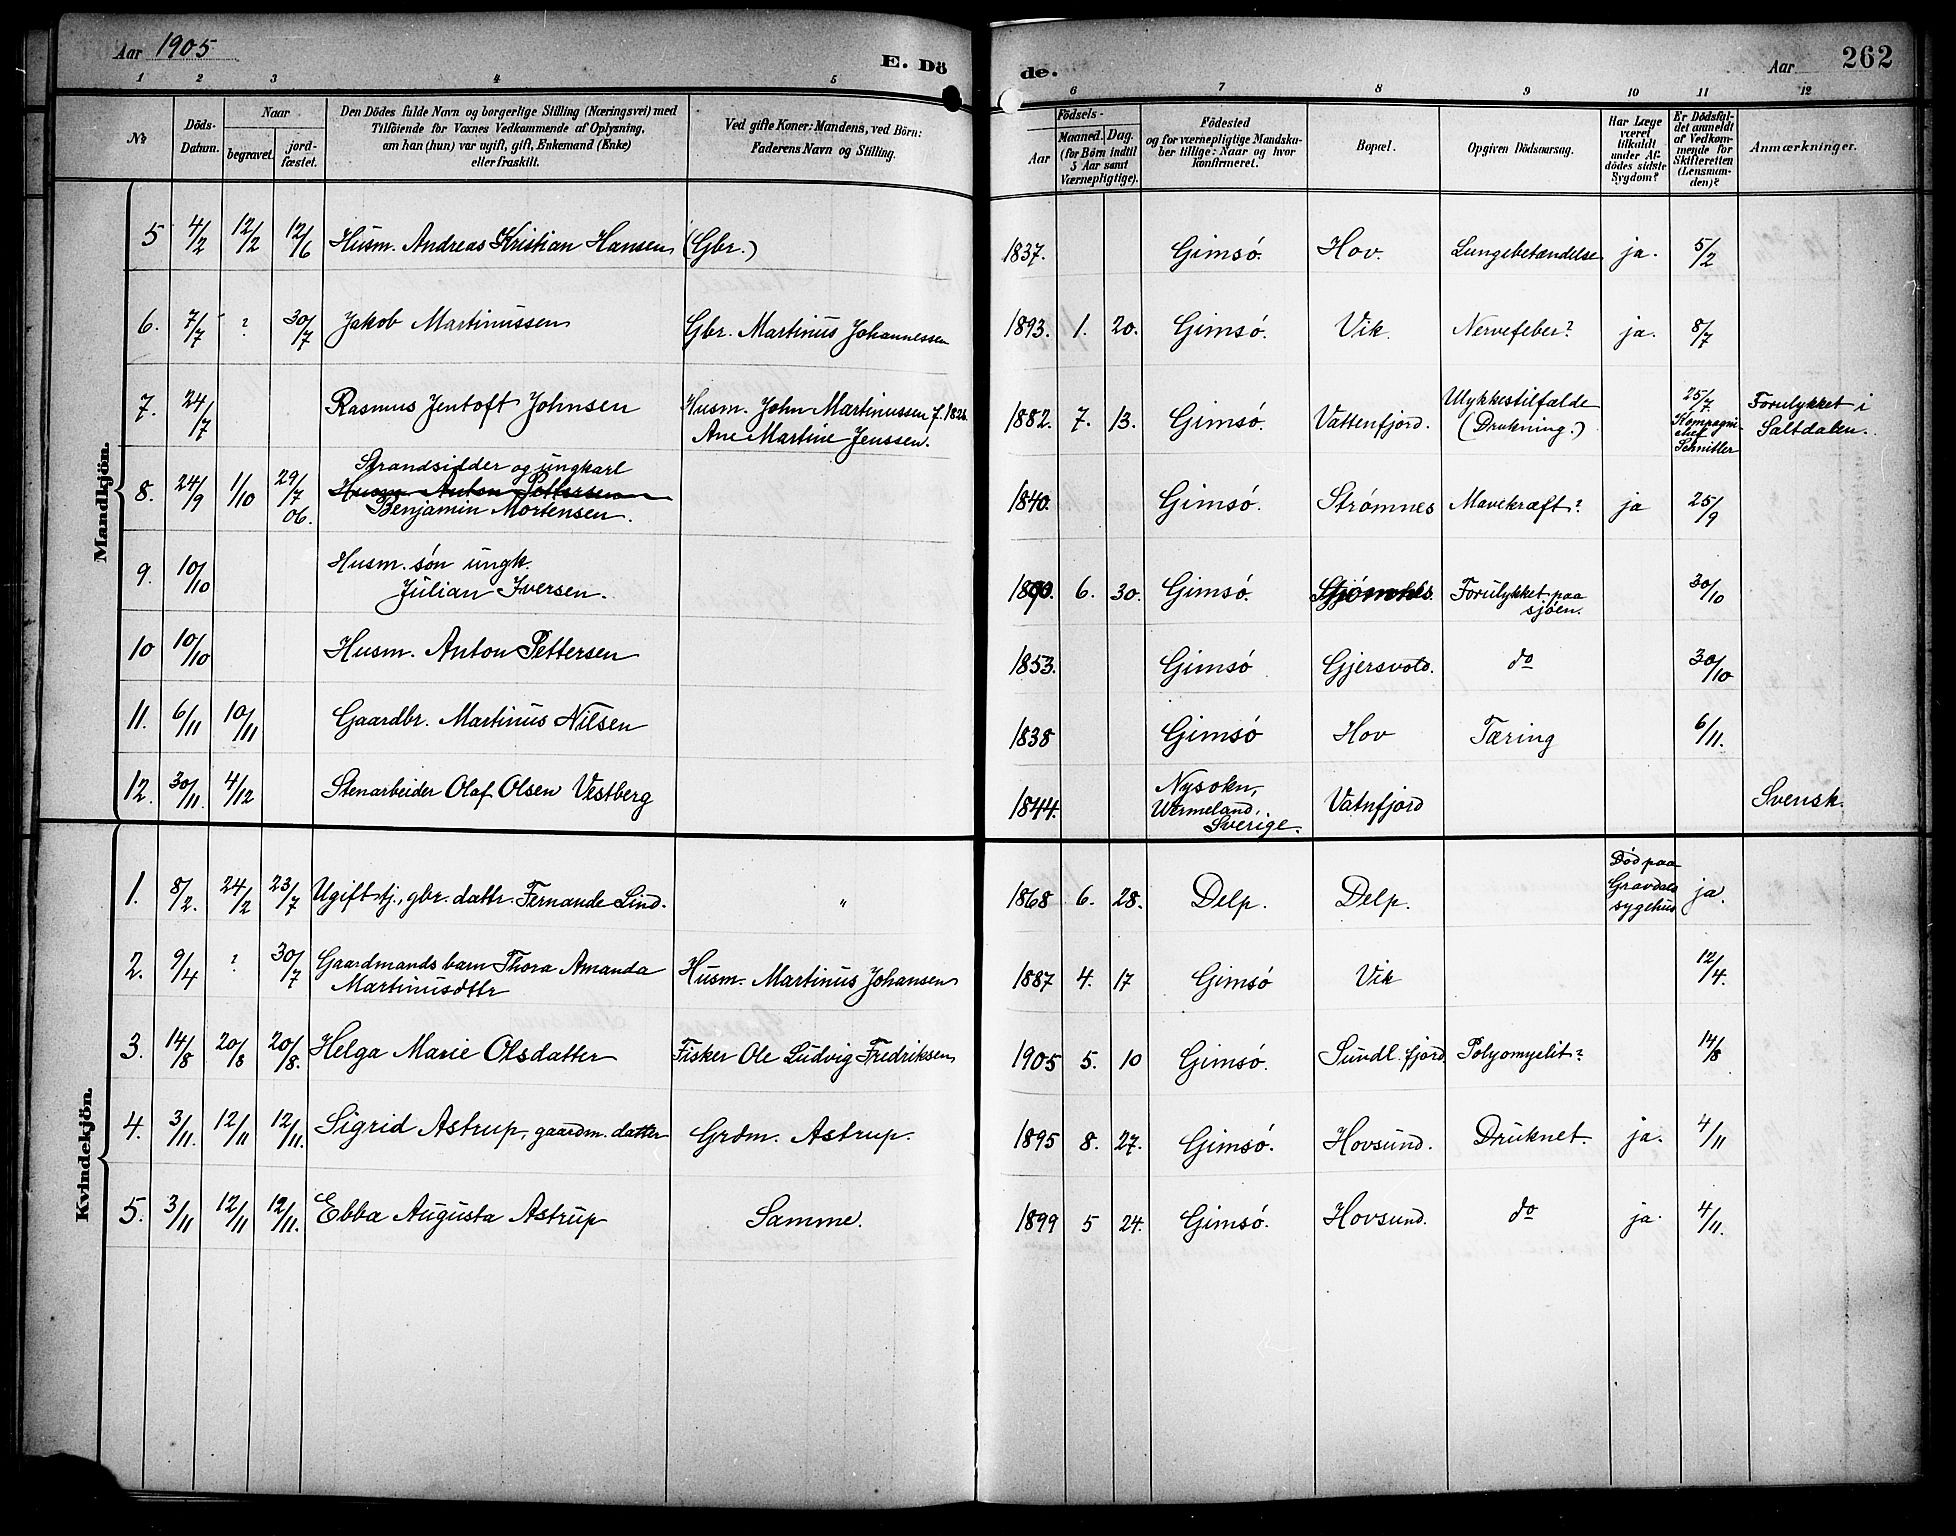 Aar 1905
E. Dö
de.
Aar
262
1 2 3 4 5 6 7 8 9 10 11 12
No
Döds-
Datum.
Naar
begravet.
jord-
fæstet.
Den Dödes fulde Navn og borgerlige Stilling (Næringsvei) med
Tilföiende for Voxnes Vedkommende af Oplysning,
om han (hun) var ugift, gift, Enkemand (Enke)
eller fraskilt.
Ved gifte Koner: Mandens, ved Börn:
Faderens Navn og Stilling.
Födsels-
Aar
Maaned.
Dag.
(for Börn indtil
5 Aar samt
Værnepligtige).
Födested
og for værnepligtige Mandska-
ber tillige: Naar og hvor
konfirmeret.
Bopæl.
Opgiven Dödsaarsag.
Har Læge
været
tilkaldt
under Af-
dödes sidste
Sygdom?
Er Dödsfal-
det anmeldt
af Vedkom-
mende for
Skifteretten
(Lensman-
den)?
Anmærkninger.
Mandkjön.
5 4/2 12/2 12/6 Husm. Andreas Kristian Hansen (Gbr.) 1837. Gimsó. Hov. Lungebetændelse ja. 5/2
6. 7/7 ? 30/7 Jakob Martinussen Gbr. Martinus Johannessen 1893. 1. 20. Gimsó. Vik. Nervefeber? ja. 8/7
7. 24/7 Rasmus Jentoft Johnsen Husm. John Martinussen f. 1828
Ane Martine Jenssen. 1882. 7. 13. Gimsó. Vattenfjord. Ulykkestilfælde
(Drukning.) 25/7
Kompagni
chef
Schnitler
Forulykket i
Saltdalen.
8. 24/9 1/10 29/7
06. Strandsidder og ungkarl
Husm. Anton Pettersen
Benjamin Mortensen. 1840. Gimsó. Strømnes Mavekræft? ja 25/9
9. 10/10 Husm. søn ungk.
Julian Iversen. 1890. 6. 30. Gimsó. Forulykket paa
sjøen. 30/10
10 10/10 Husm. Anton Pettersen 1853. Gimsó Gjersvold. do 30/10
11. 6/11 10/11 Gaardbr. Martinus Nilsen 1838 Gimsó Hov Tæring 6/11.
12. 30/11. 4/12 Stenarbeider Olaf Olsen Vestberg 1844. Nysokn,
Wermeland,
Sverige. Vatnfjord Svensk.
Kvindekjön.
1. 8/2. 24/2 23/7 Ugift tj., gbr. dattr. Fernande Lind. " 1868 6. 28. Delp. Delp. Død paa
Gravdals
sygehus ja.
2. 9/4 ? 30/7 Gaardmands barn Thora Amanda
Martinusdttr Husm. Martinus Johansen 1887 4. 17 Gimsó Vik 12/4.
3. 14/8 20/8 20/8. Helga Marie Olsdatter Fisker Ole Ludvig Fredriksen 1905 5. 10 Gimsó. Sundl. fjord Polyomyelit? 14/8
4. 3/11. 12/11 12/11. Sigrid Astrup, gaardm. datter Grdm. Astrup. 1895 8. 27. Gimsó. Hovsund. Druknet. ja. 4/11
5. 3/11 12/11 12/11. Ebba Augusta Astrup Samme. 1899 5 24. Gimsó. Hovsund. do ja. 4/11.